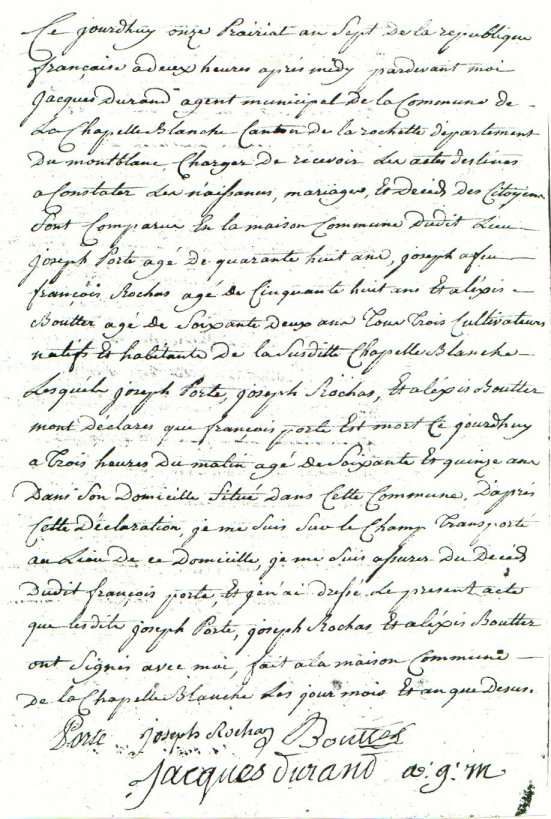 Ce jourdhuy onze Prairiat an Sept de la republique
françaisé a deux heures aprés midy pardevant moi
Jacques Durand agent municipal de la Commune de
La Chapelle Blanche Canton de la rochette département
Du montblanc, Charger de recevoir Les actes destinés
a Constater Les Naissances, mariages, Et Décés des Citoyens
Sont Comparus En la maison Commune Dudit Lieu
joseph Porte agé de quarante huit ans, joseph a feu
françois Rochas agé de Cinquante huit ans Et aléxis
Boutter agé de Soixante deux ans Tous Trois Cultivateurs
natifs Et habitants de la Susditte Chapelle Blanche
Lesquels joseph Porte, joseph Rochas, Et aléxis Boutter
mont Déclarés que françois porte Est mort Ce jourdhuy
a Trois heures Du matin agé de Soixante Et quinze ans
Dans Son Domicille Situé dans Cette Commune. D'aprés
Cette Déclaration, je me Suis Sur le Champ Transporté
au Lieu de ce Domicille, je me Suis assurer du Décés
Dudit françois porte, Et j'en ai dressé Le present acte
que lesdits joseph Porte, joseph Rochas Et aléxis Boutter
ont Signés avec moi, fait a la maison Commune
de la Chapelle Blanche Les jour mois Et an que Desus.
Porte joseph Rochas Boutter
Jacques durand a. g. m